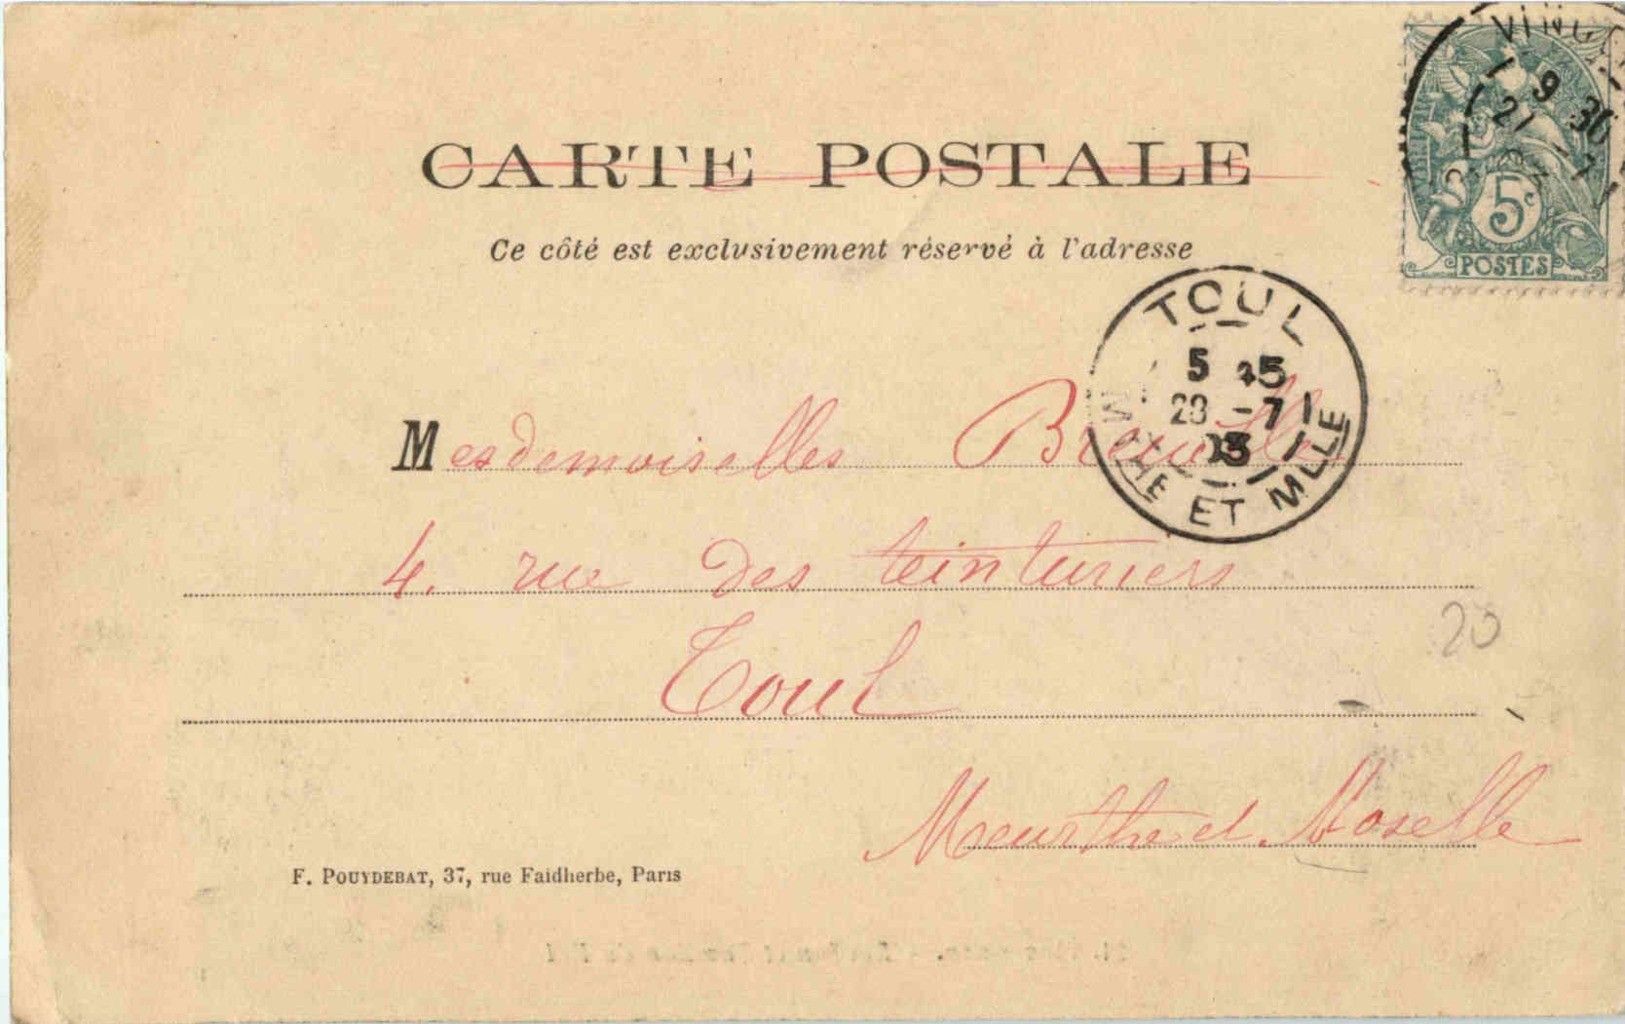 CARTE POSTALE
Ce côté est exclusivement réservé à l'adresse
5c
POSTES
9 30
21 -7
03
TOUL
5 45
23 -7
03
MTHE ET MLLE
Mesdemoiselles
4. rue des teinturiers
Toul
20
Meurthe et Moselle
F. POUYDEBAT, 37, rue Faidherbe, Paris